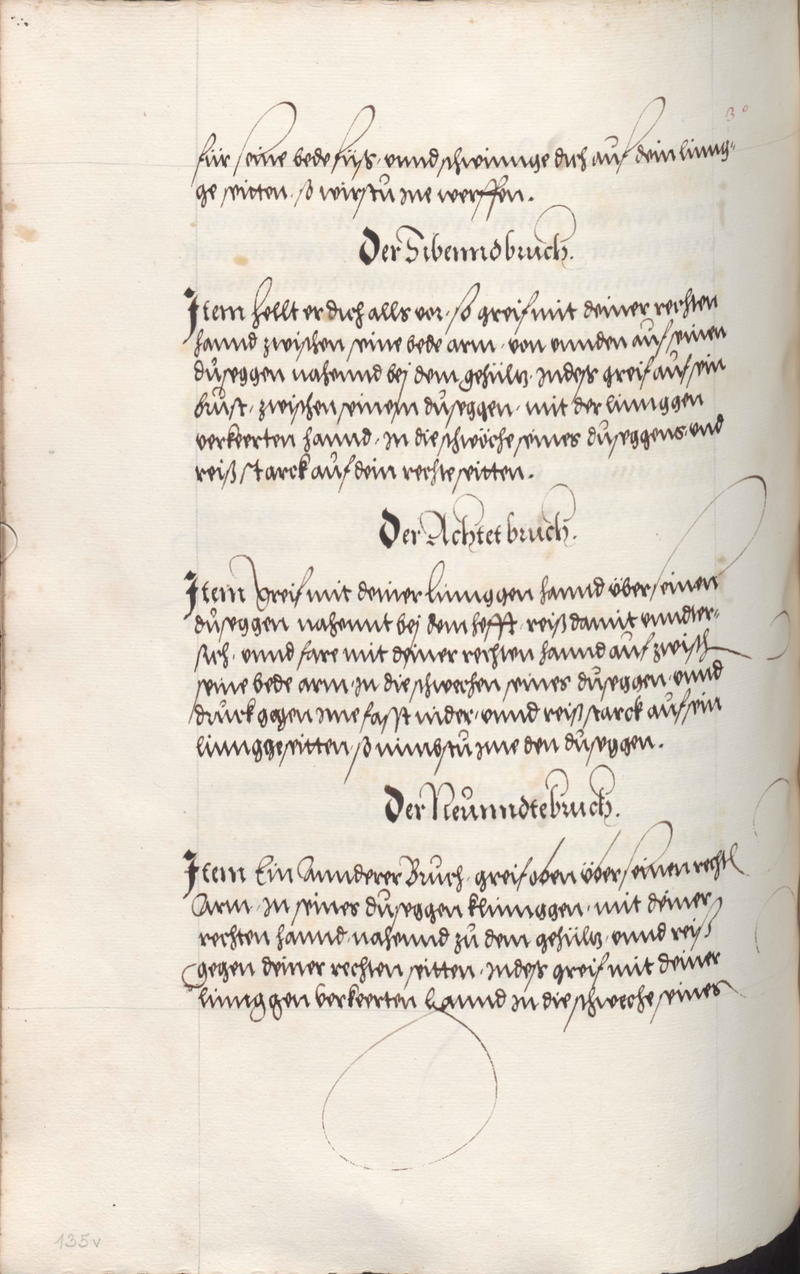 für seine bede füs, vnnd schwinnge dich auf dein linng„
ge seitten, so wirstu Ine werffen.
Der Sibenndbruch.
Item hellt er dich alls vor, so greif mit deiner rechten
hannd zwischen seine bede arm, von vnnden auf seinen
duseggen nahennd bej dem gehültz, Indes greif auf sein
brust, zwischen seinem duseggen, mit der linnggen
verkeerten hannd, In die schwöche seines duseggens vnd
reiß starck auf dein rechte seitten.
Der Achtet bruch.
Item Greif mit deiner linnggen hannd über seinen
duseggen nahennt bej dem hefft, reiß damit vnndter„
sich, vnnd fare mit deiner rechten hannd auf zwisch
seine bede arm, In die schwechen seines duseggen, vnnd
druck gegen Ime fasst nider, vnnd reiß starck auf sein
linngge seitten, so nimbstu Ime den duseggen.
Der Neunndte bruch.
Item Ein Annderer Bruch, greif oben über seinen recht
Arm, In seines duseggen klinnggen, mit deiner
rechten hannd, nahennd zu dem gehültz, vnnd reiß
gegen deiner rechten seitten, Indes greif mit deiner
linnggen verkeerten hannd In die schweche seines
135v